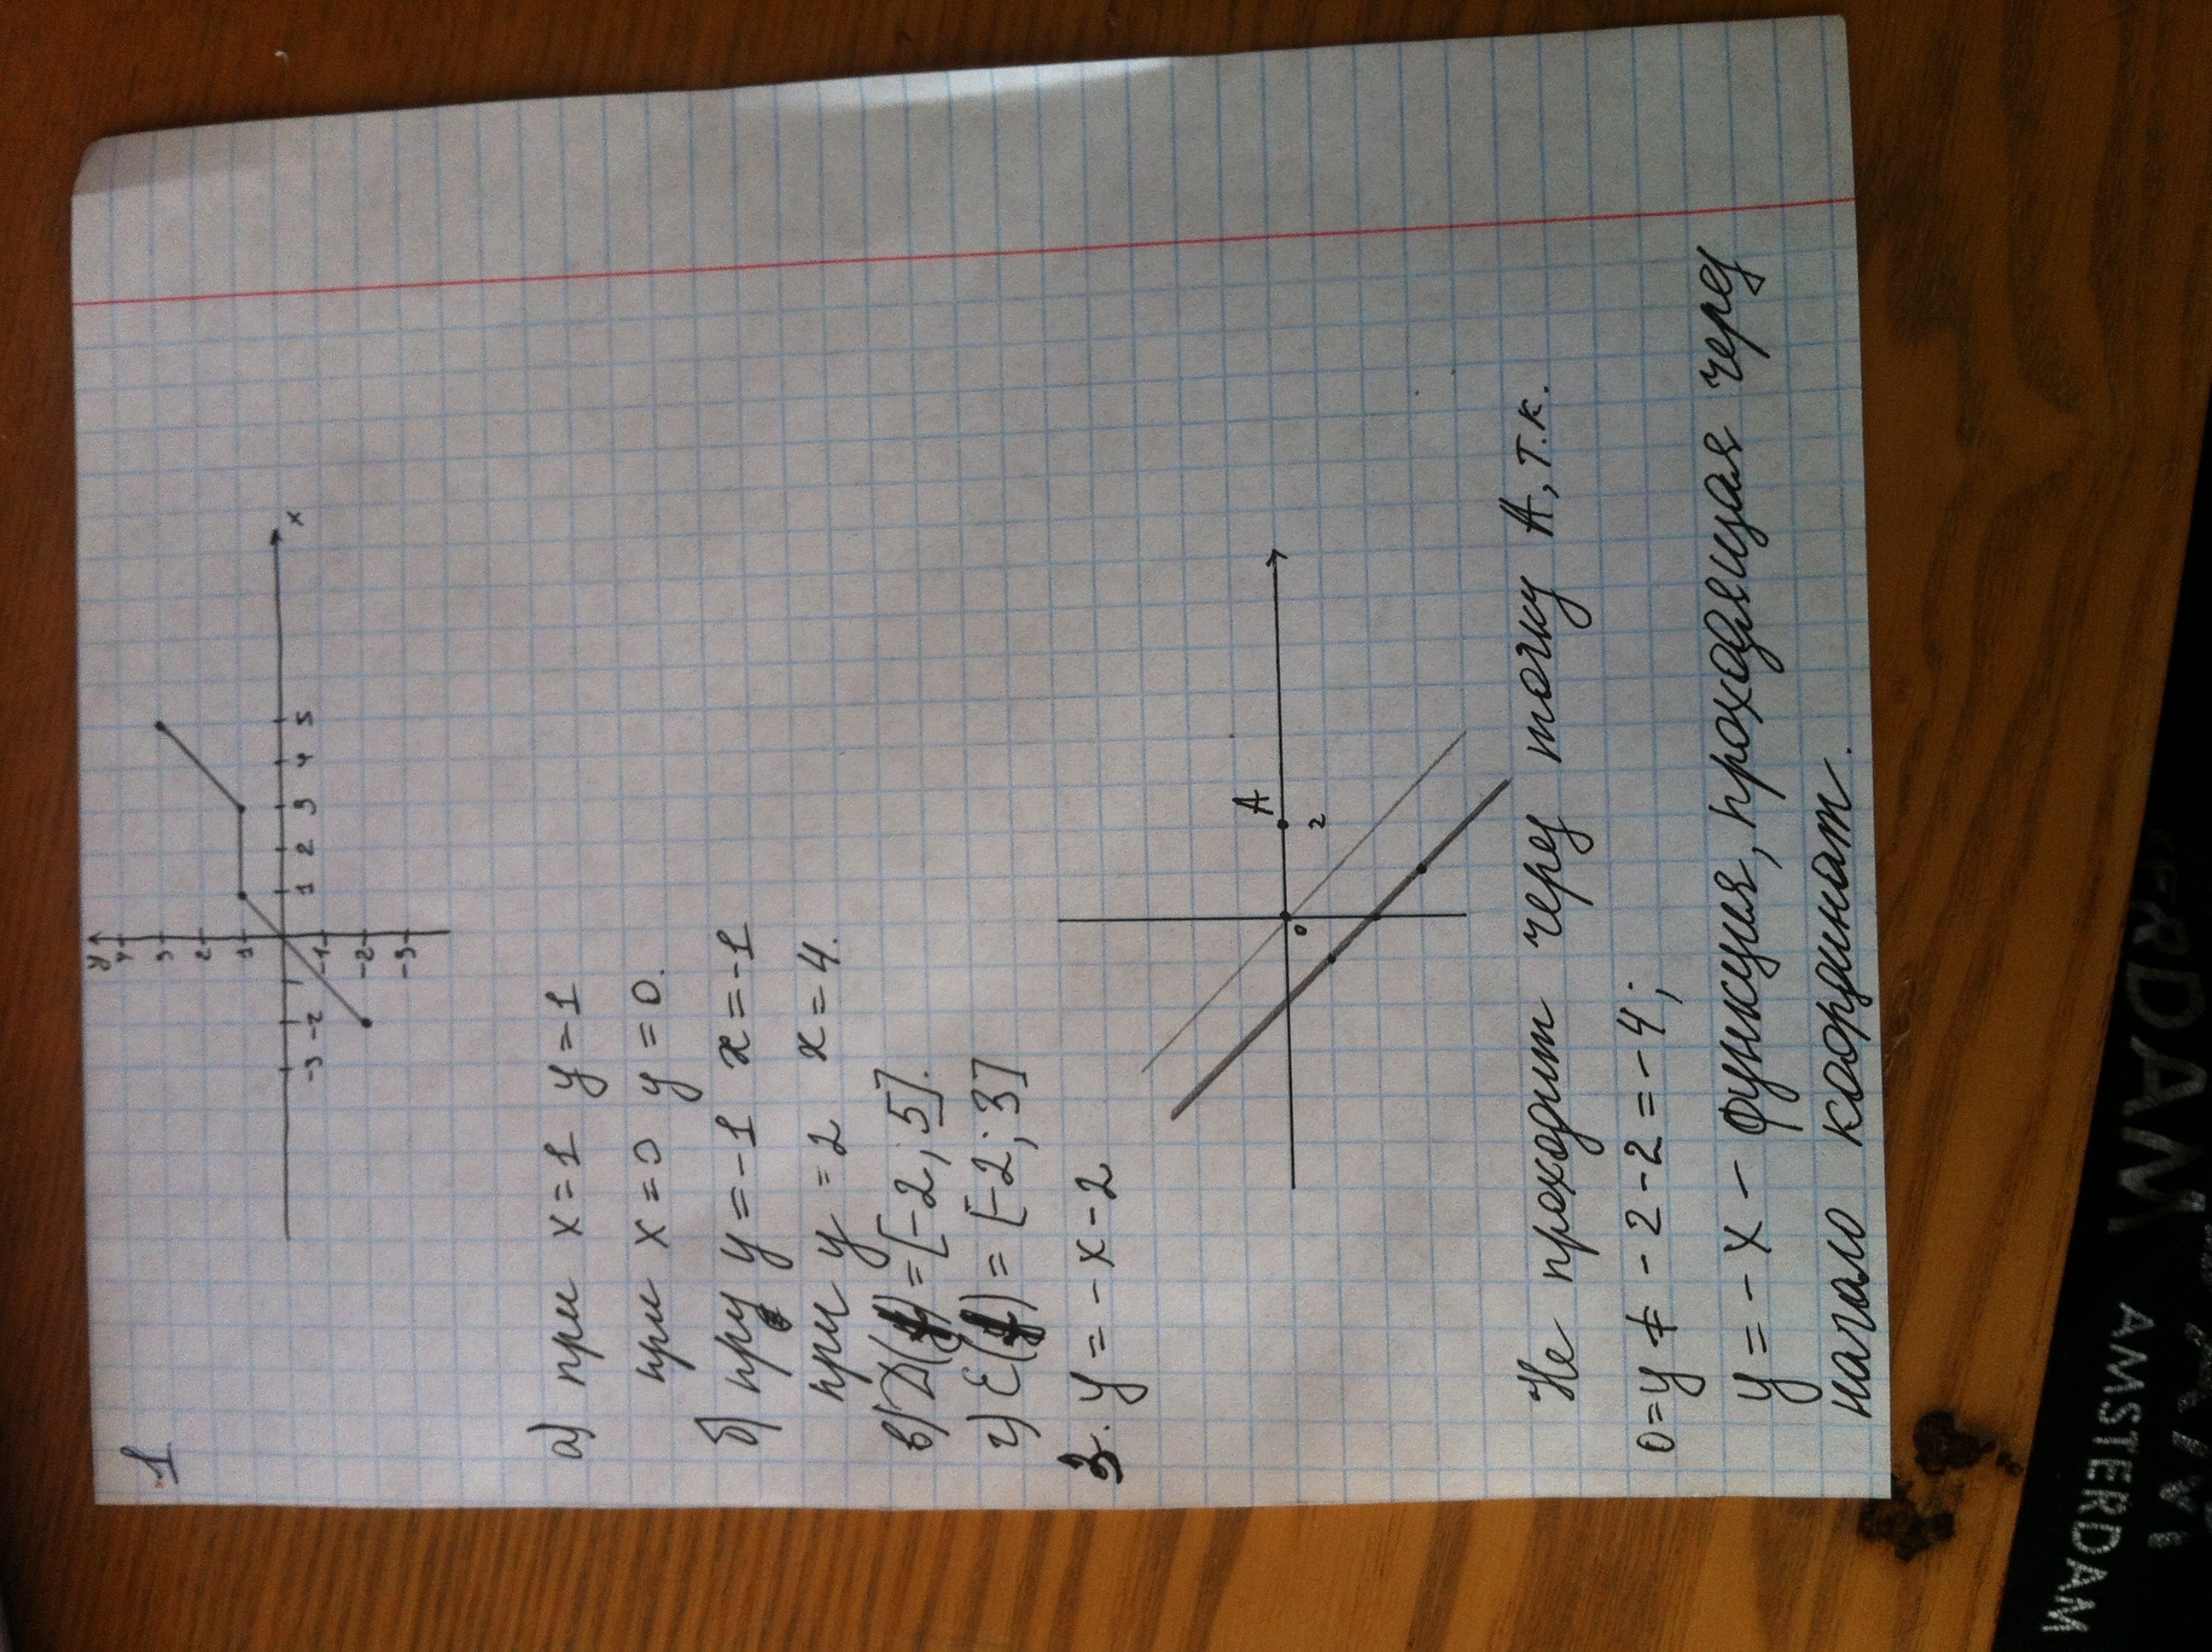 1
y
4
3
2
1
-1
-2
-3
-3 -2 1 2 3 4 5
x
а) при x=1 y=1
при x=0 y=0.
б) при y=-1 x=-1
при y=2 x=4.
в) D(f)=[-2;5].
г) E(f)=[-2;3]
3. y=-x-2
A
0 2
Не проходит через точку А, т.к.
0=y≠-2-2=-4;
y=-x-функция, проходящая через
начало координат.
RDAM
AMSTERDAM
AMSTERDAM